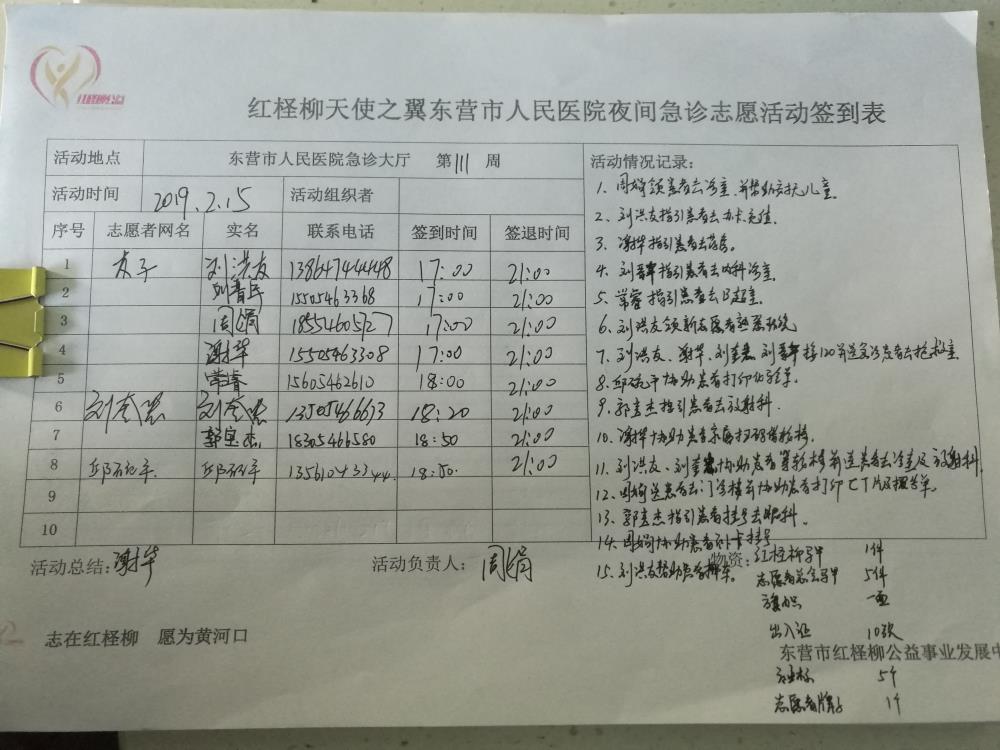 红柽柳公益
红柽柳天使之翼东营市人民医院夜间急诊志愿活动签到表
活动地点 东营市人民医院急诊大厅 第111周
活动时间 2019.2.15 活动组织者
序号 志愿者网名 实名 联系电话 签到时间 签退时间
1 友子 刘洪友 13864744448 17:00 21:00
2 刘青军 15505463368 17:00 21:00
3 周娟 18554605727 17:00 21:00
4 谢华 15505463308 17:00 21:00
5 常睿 15605462610 18:00 21:00
6 刘奎忠 刘奎忠 13505466613 18:20 21:00
7 郭宝杰 18305466580 18:50 21:00
8 邱 平 邱 平 13561043344 18:50 21:00
9
10
活动情况记录：
1、周娟领患者去诊室，并帮助 扶儿童。
2、刘洪友指引患者去办卡充值。
3、谢华指引患者去药房。
4、刘青军指引患者去内科诊室。
5、常睿指引患者去B超室。
6、刘洪友领新志愿者熟悉环境
7、刘洪友、谢华、刘奎忠、刘青军接120并送急诊患者去抢救室
8、邱 平协助患者打印化验单。
9、郭宝杰指引患者去放射科。
10、谢华协助患者家属扫码
11、刘洪友、刘奎忠协助患者 并送患者去诊室及放射科
12、周娟送患者去门诊楼并协助患者打印CT片及报告单。
13、郭宝杰指引患者挂号去眼科。
14、周娟协助患者补卡挂号
15、刘洪友帮助患者推车。
活动总结：谢华 活动负责人：周娟
物资：红柽柳马甲 1件
志愿者总会马甲 5件
旗帜 一面
出入证 10张
5个
志愿者牌子 1个
志在红柽柳 愿为黄河口
东营市红柽柳公益事业发展中